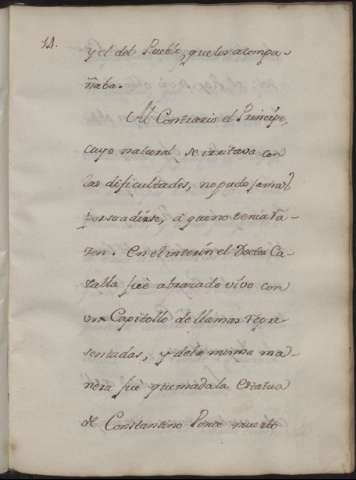 14.
y el del Pueblo, que los acompa-
ñaba.
Al Contrario el Principe,
cuyo natural se irritava con
las dificultades, no pudo jamas
persuadirse, á que no tenia ra-
zon. En el interin el Doctor Ca-
zalla fué abrasado vivo con
un Capitollo de llamas repre-
sentadas, y de la misma ma-
nera fué quemada la Estatua
de Constantino Ponce muerto